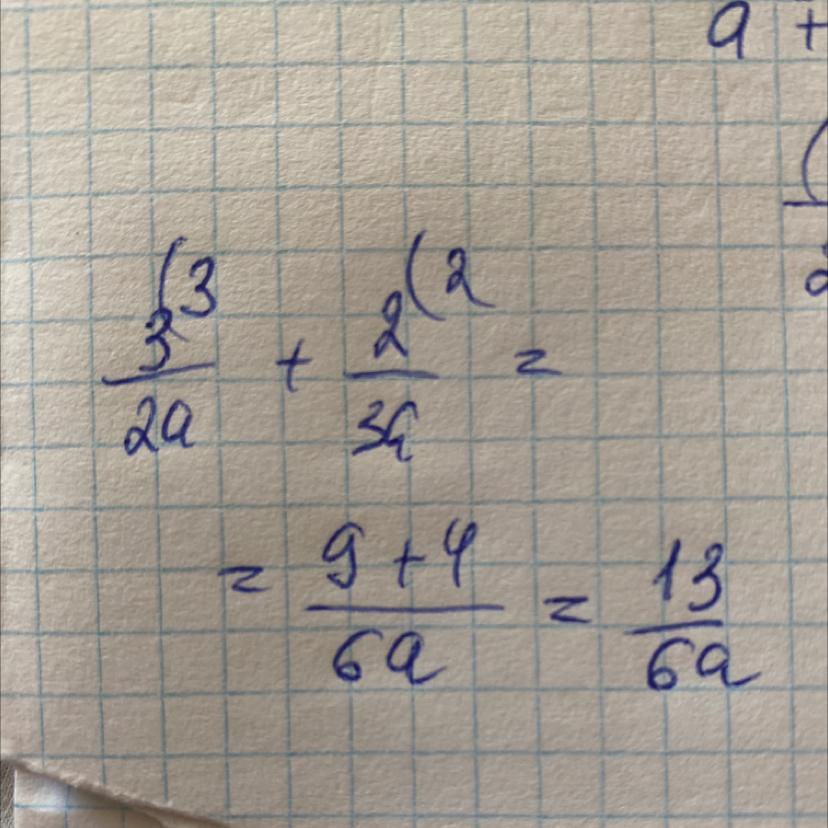 a +
(
3^(3 / 2a + 2^(2 / 3a =
= 9 + 4 / 6a = 13 / 6a